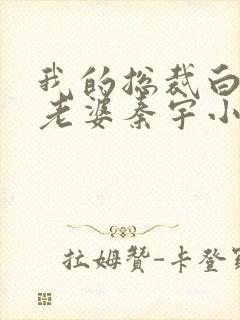 我的总裁白
老婆秦宇小
拉姆贊-卡登